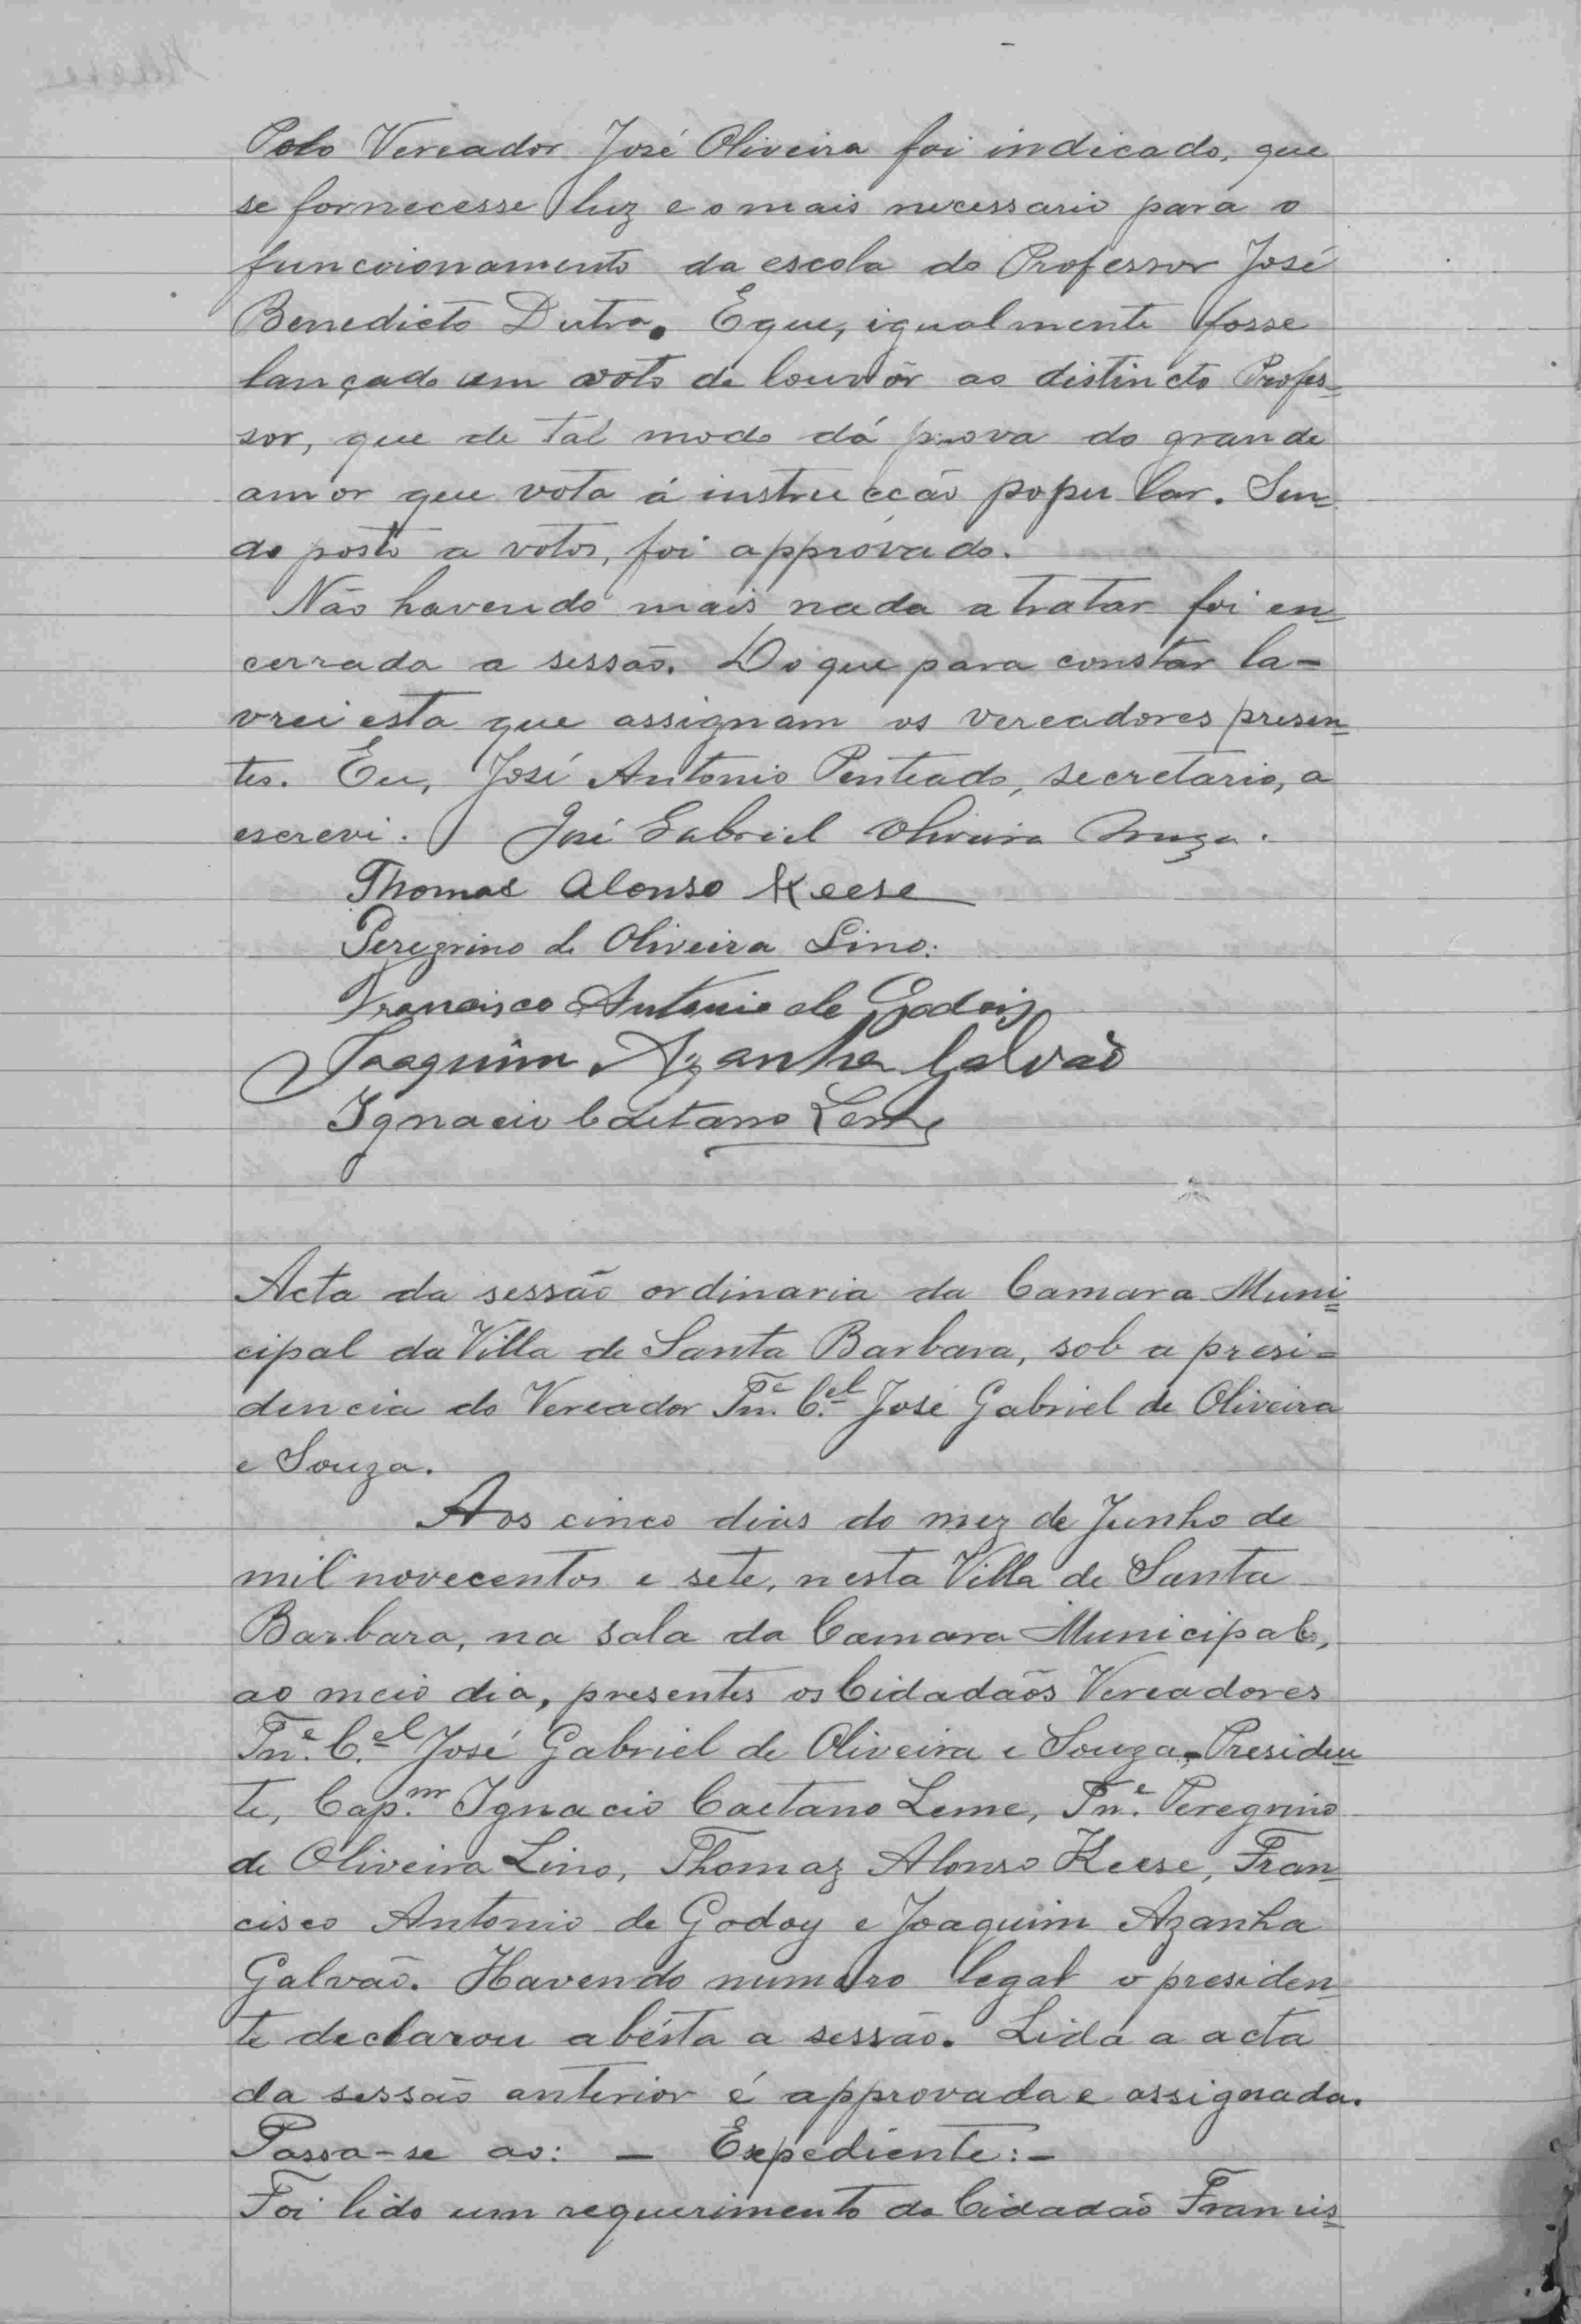 Pelo Vereador José Oliveira foi indicado, que
se fornecesse luz e o mais necessario para o
funccionamento da escola do Professor José
Benedicto Dutra. E que, igualmente fosse
lançado um voto de louvôr ao distincto Profes=
sor, que de tal modo dá prova do grande
amor que vota á instrucção popular. Sen=
do posto a votos, foi approvado.
Não havendo mais nada a tratar foi en=
cerrada a sessão. Do que para constar la-
vrei esta que assignam os vereadores presen=
tes. Eu, José Antonio Penteado, secretario, a
escrevi. José Gabriel Oliveira Souza.
Thomas Alonso Keese
Peregrino de Oliveira Lino.
Francisco Antonio de Godois
Joaquim Azanha Galvão
Ignacio Caetano Leme
Acta da sessão ordinaria da Camara Muni=
cipal da Villa de Santa Barbara, sob a presi=
dencia do Vereador Tn.e C.el José Gabriel de Oliveira
e Souza.
Aos cinco dias do mez de Junho de
mil novecentos e sete, nesta Villa de Santa
Barbara, na sala da Camara Municipal,
ao meio dia, presentes os Cidadãos Vereadores
Tn.e C.el José Gabriel de Oliveira e Souza, Presiden=
te, Cap.m Ignacio Caetano Leme, Tn.e Peregrino
de Oliveira Lino, Thomaz Alonso Keese, Fran=
cisco Antonio de Godoy e Joaquim Azanha
Galvão. Havendo numero legal o presiden=
te declarou abérta a sessão. Lida a acta
da sessão anterior é approvada e assignada.
Passa-se ao: — Expediente:—
Foi lido um requerimento do Cidadão Francis=